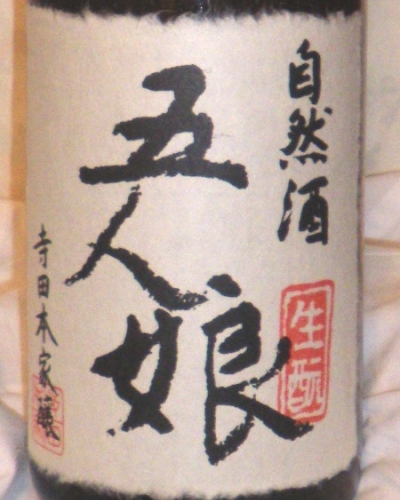 自然酒
五人娘
生酛
寺田本家醸